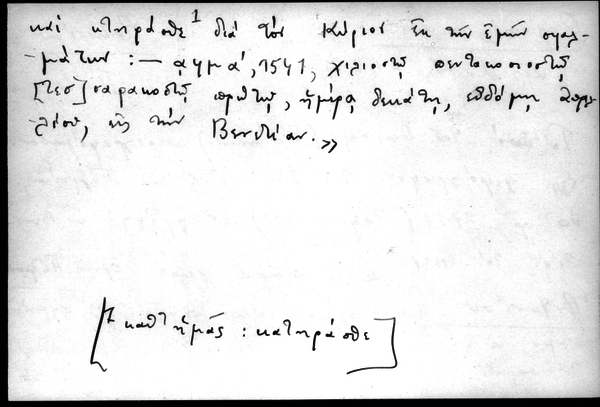 καὶ κτηρᾶσθε¹ διὰ τὸν Κύριον ἐκ τὴν ἐμὴν σφαλ-
μάτων :— αφμα´, 1541, χιλιοστῷ πεντακοσιοστῷ
[τεσ]σαρακοστῷ πρώτῳ, ἡμέρᾳ δεκάτῃ, ἑβδόμῃ Ἀπρι-
λίου, εἰς τὴν Βενετίαν.»
[1 καθ' ἡμᾶς : καταρᾶσθε]